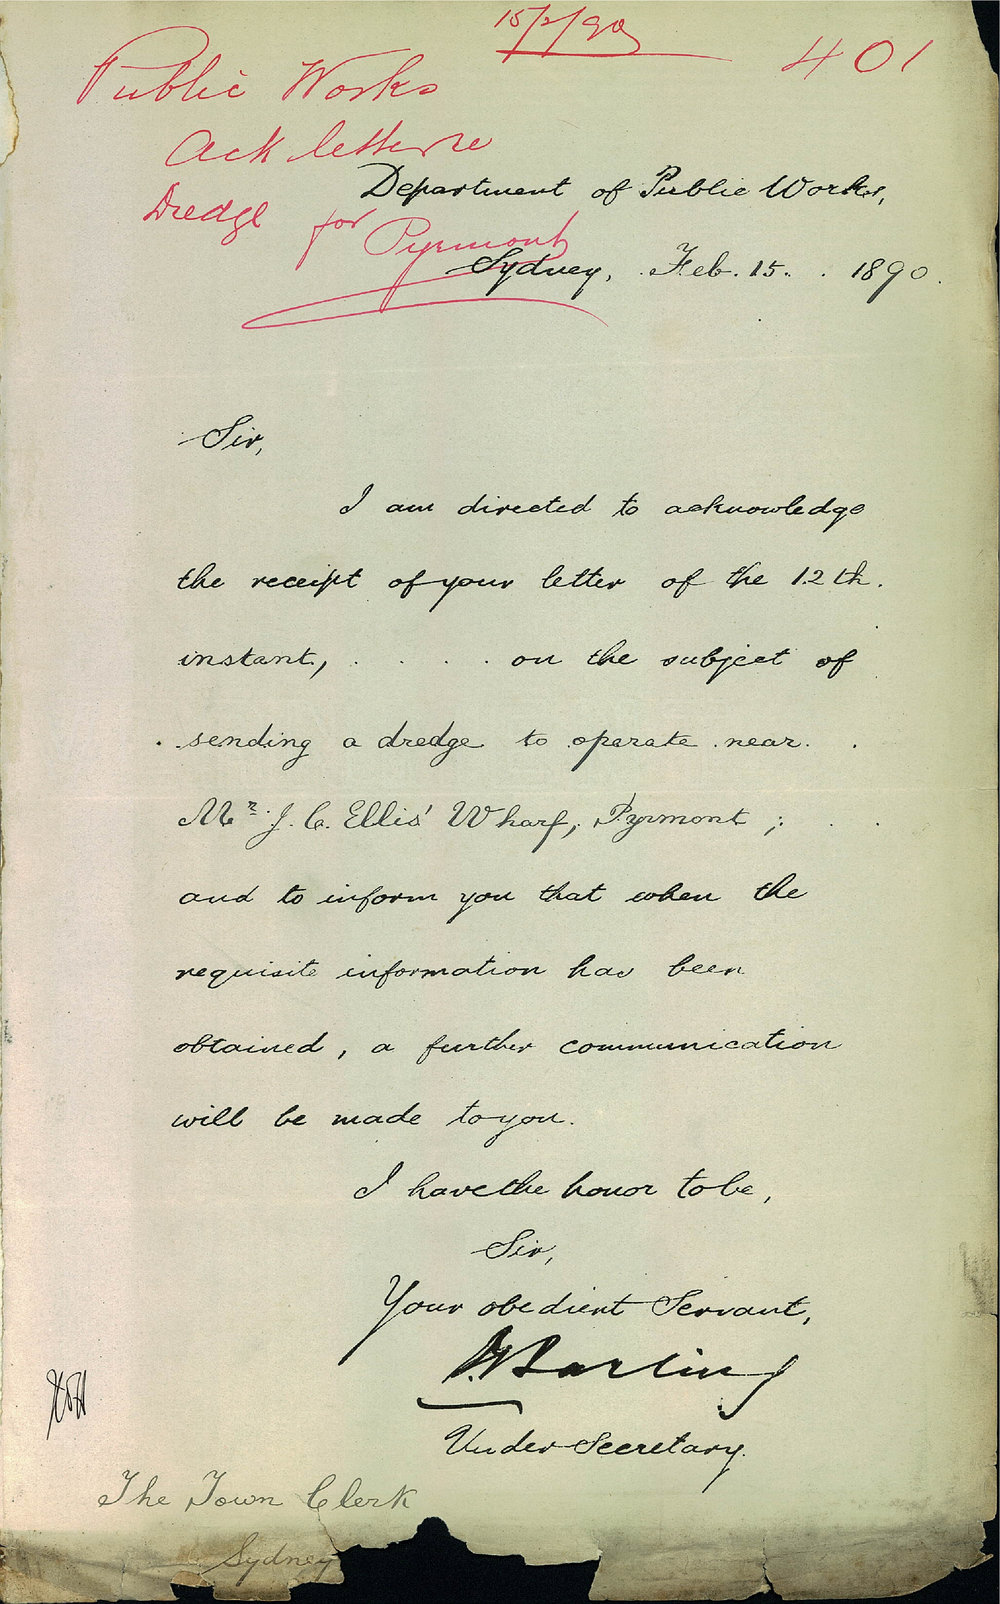 15/2/90
401
Public Works
Ack letter re
Dredge for Pyrmont
Department of Public Works,
Sydney, Feb. 15. 1890.
Sir,
I am directed to acknowledge
the receipt of your letter of the 12th.
instant, . . . . on the subject of
sending a dredge to operate near
Mr. J. C. Ellis' Wharf, Pyrmont;
and to inform you that when the
requisite information has been
obtained, a further communication
will be made to you.
I have the honor to be,
Sir,
Your obedient Servant,
Barling
Under Secretary.
The Town Clerk
Sydney